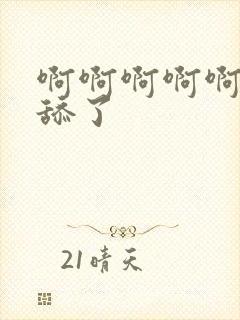 啊啊啊啊啊
舔了
21晴天